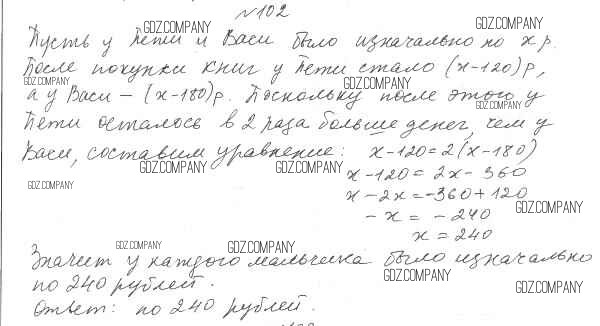 №102
Пусть у Пети и Васи было изначально по x р.
После покупки книг у Пети стало (x-120)р,
а у Васи – (x-180)р. Поскольку после этого у
Пети осталось в 2 раза больше денег, чем у
Васи, составим уравнение: x-120=2(x-180)
x-120=2x-360
x-2x=-360+120
-x=-240
x=240
Значит у каждого мальчика было изначально
по 240 рублей.
Ответ: по 240 рублей.
GDZ.COMPANY
GDZ.COMPANY
GDZ.COMPANY
GDZ.COMPANY
GDZ.COMPANY
GDZ.COMPANY
GDZ.COMPANY
GDZ.COMPANY
GDZ.COMPANY
GDZ.COMPANY
GDZ.COMPANY
GDZ.COMPANY
GDZ.COMPANY